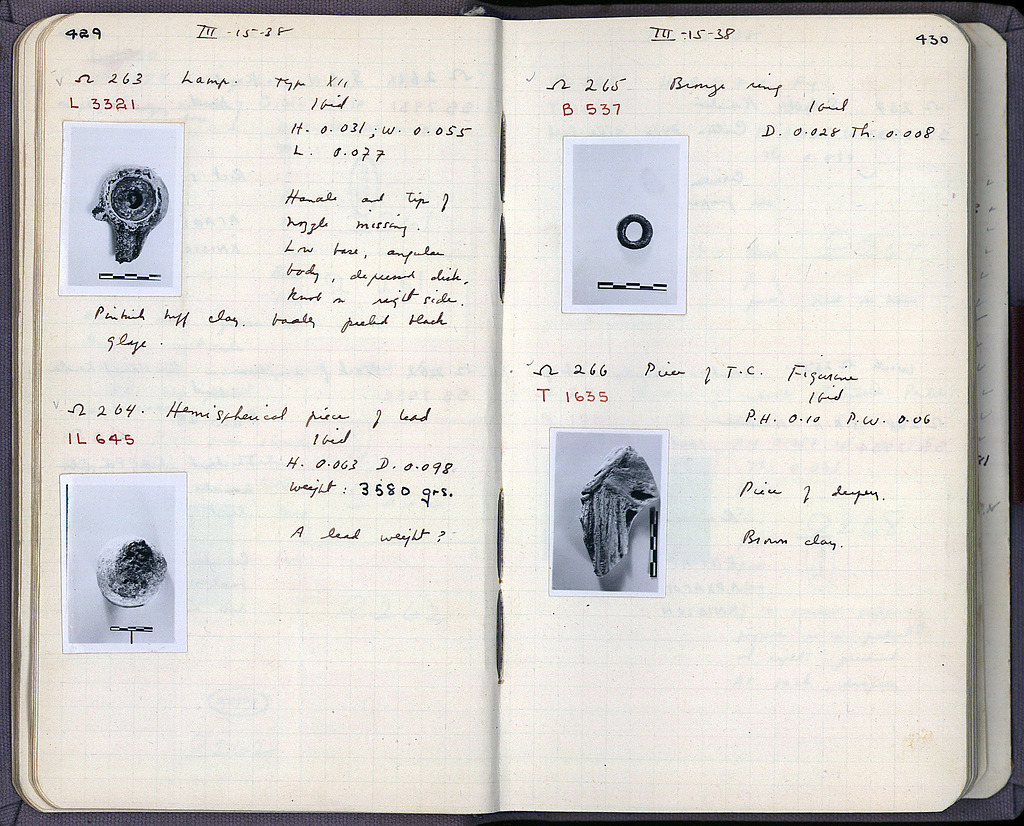 429
III -15-38
Ω 263 Lamp. Type XII
L 3321
Ibid
H. 0.031; W. 0.055
L. 0.077
Handle and tip of
nozzle missing.
Low base, angular
body, depressed disk,
knob on right side.
Pinkish buff clay. Badly peeled black
glaze.
Ω 264. Hemispherical piece of lead
IL 645
Ibid
H. 0.063 D. 0.098
Weight: 3580 grs.
A lead weight?
III -15-38
430
Ω 265 Bronze ring
B 537
Ibid
D. 0.028 Th. 0.008
Ω 266 Piece of T.C. Figurine
T 1635
Ibid
P.H. 0.10 P.W. 0.06
Piece of drapery.
Brown clay.